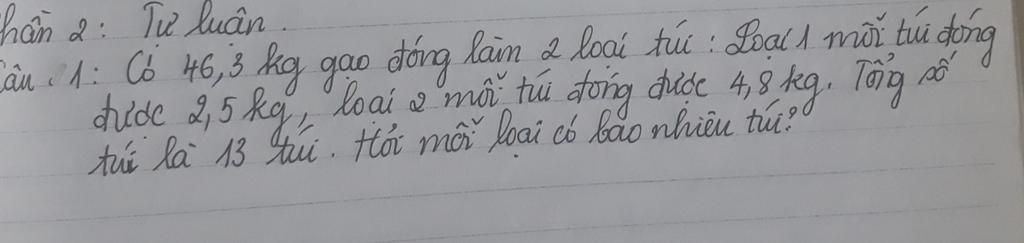 hần 2: Tự luận.
âu 1: Có 46,3 kg gạo đóng làm 2 loại túi: Loại 1 mỗi túi đóng
được 2,5 kg, loại 2 mỗi túi đóng được 4,8 kg. Tổng số
túi là 13 túi. Hỏi mỗi loại có bao nhiêu túi?